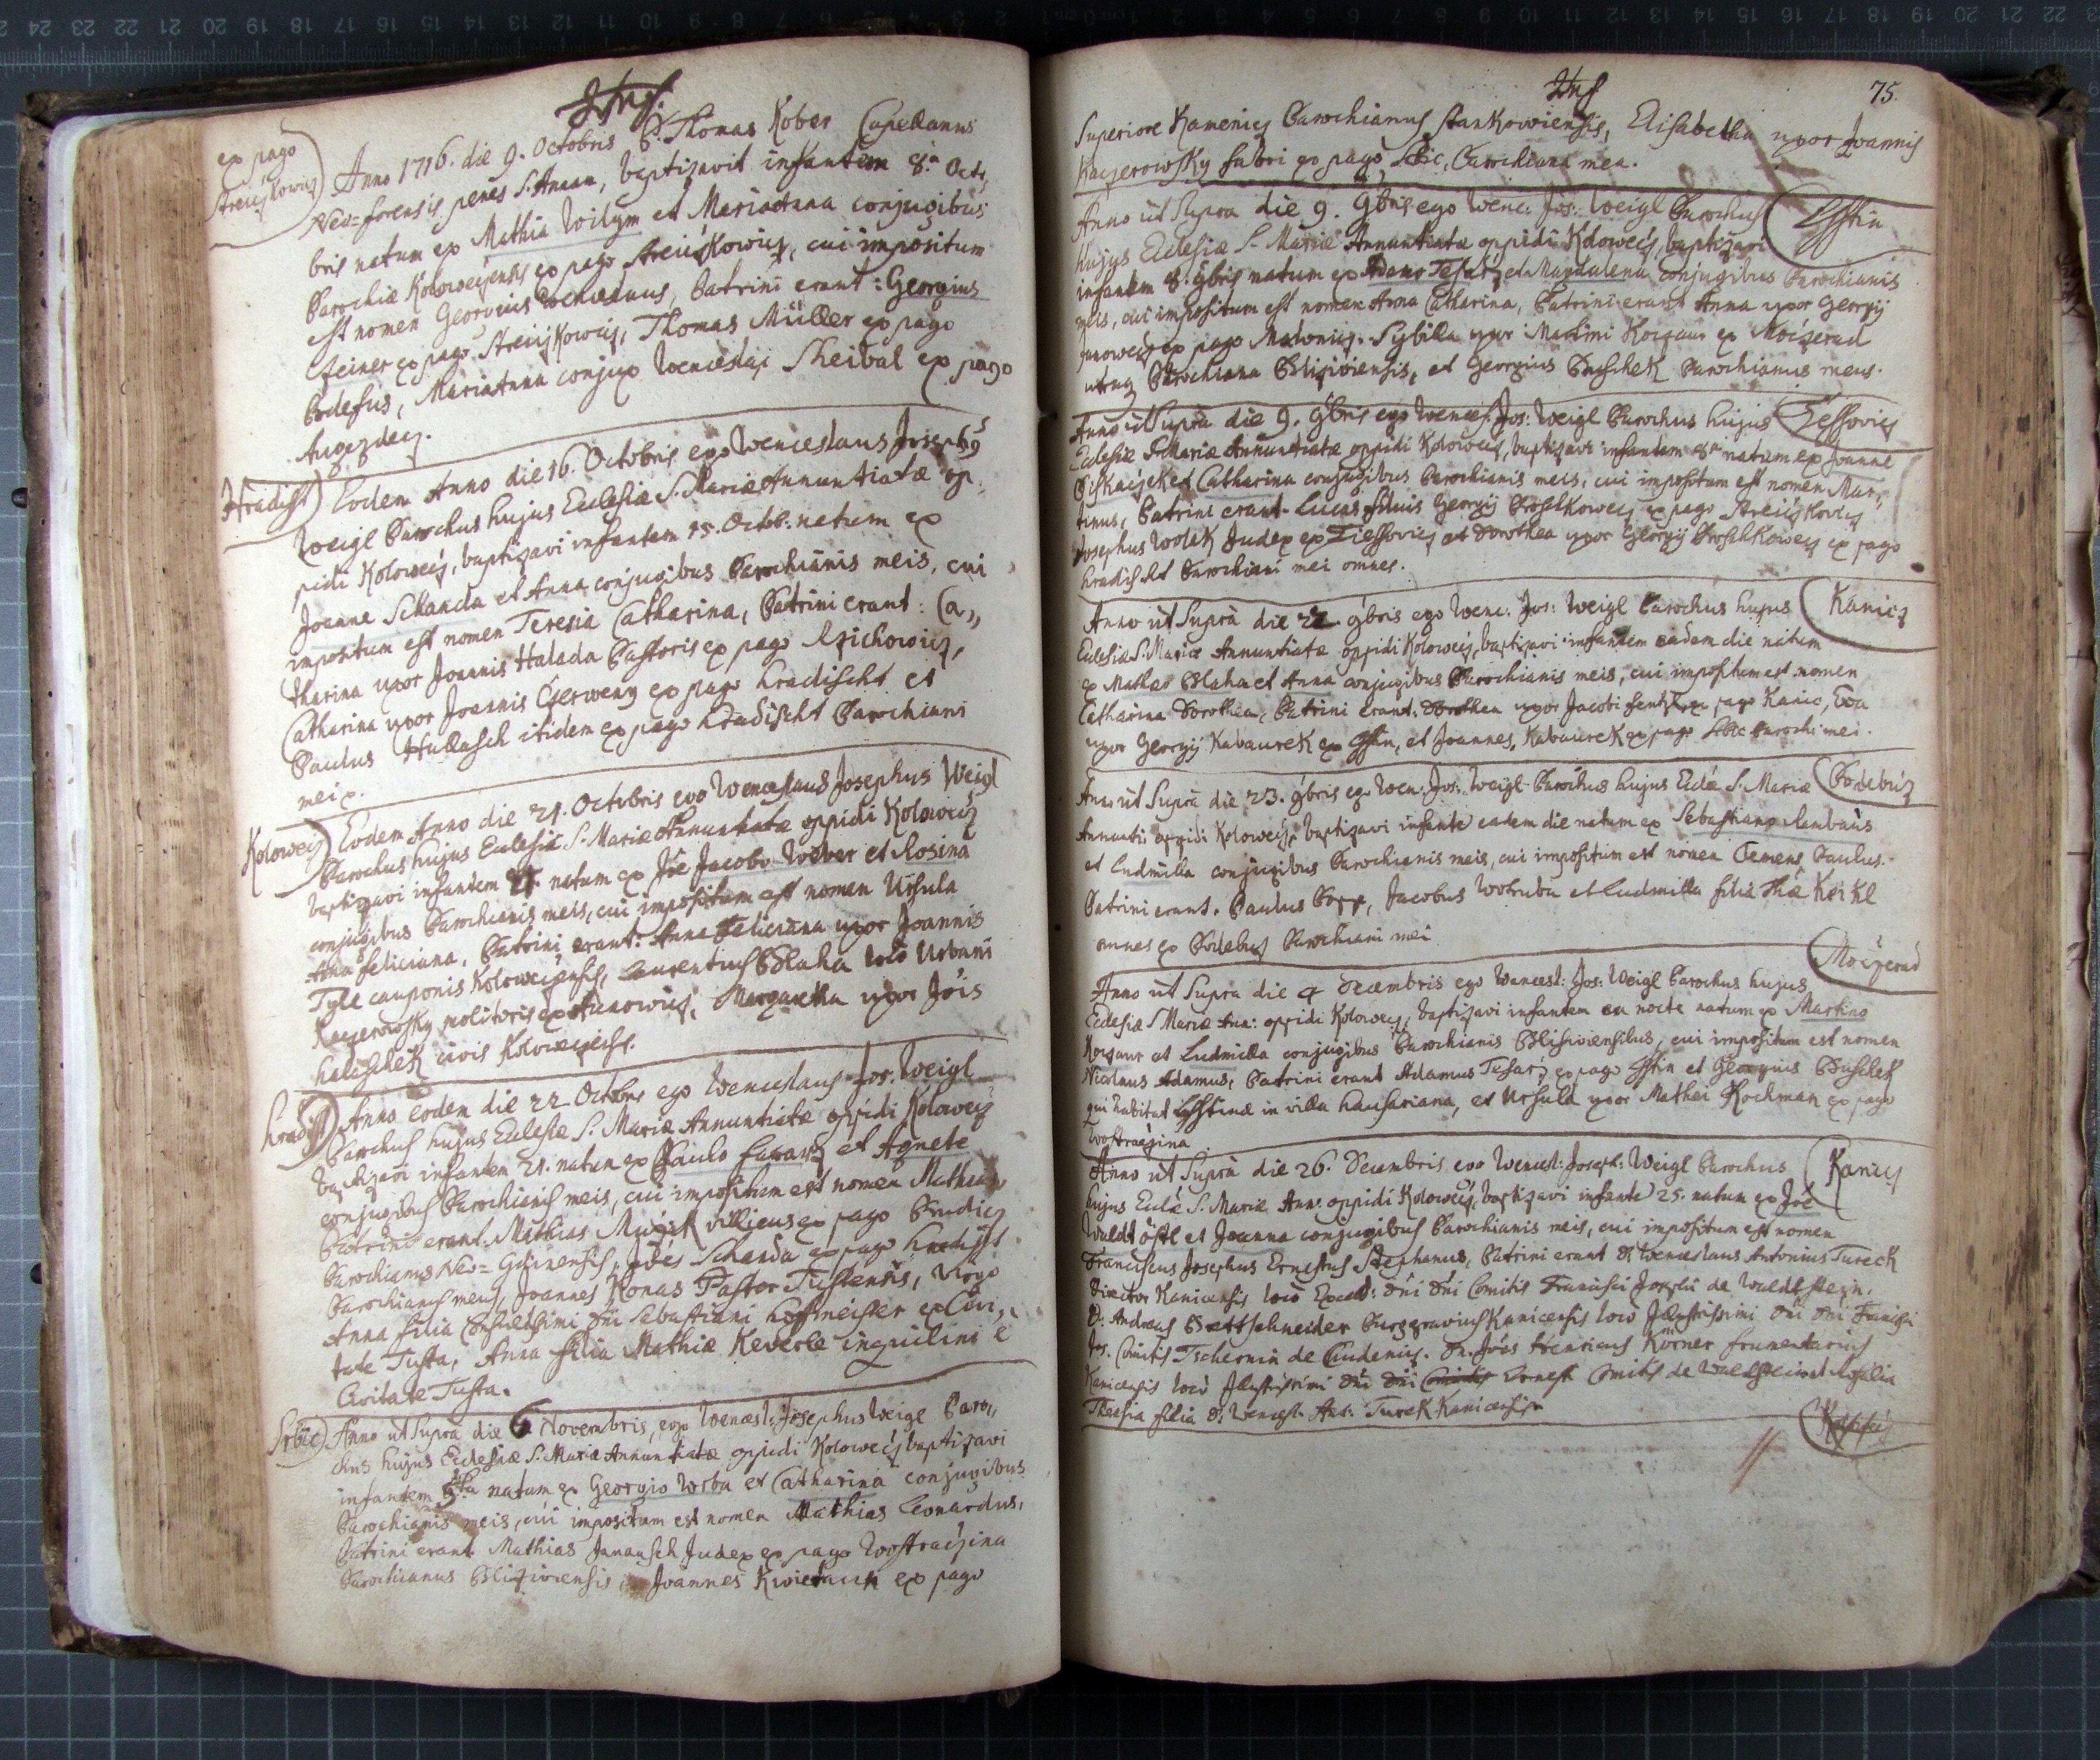 ex pago
Anno 1716. die 9. Octobris P. Thomas Kober Capellanus
Neo=forensis penes S. Annam, baptizavit infantem 8.a Octo,,
bris natum ex Mathia Wilym et Marianna conjugibus
Parochiæ Kolowecensis ex pago Streycskowicz, cui impositum
est nomen Georgius Wenceslaus, Patrini erant: Georgius
Zeiner ex pago Streycskowicz, Thomas Müller ex pago
Podefus, Marianna conjux Wenceslai Sheibal ex pago
Augezdecz.
Hradist) Eodem Anno die 16. Octobris ego Wenceslaus Josephus
Weigl Parochus hujus Ecclesiæ S. Mariæ Annuntiatæ op,,
pidi Kolowecz, baptizavi infantem 15. Octob: natum ex
Joanne Schanda et Anna conjugibus Parochianis meis, cui
impositum est nomen Teresia Catharina, Patrini erant: Ca,,
tharina uxor Joannis Halada Pastoris ex pago Rzichowicz,
Catharina uxor Joannis Czerweny ex pago hradischt et
Paulus Hallasch itidem ex pago hradischt Parochiani
mei
Kolowecz) Eodem Anno die 21. Octobris ego Wenceslaus Josephus Weigl
Parochus hujus Ecclesiæ S. Mariæ Annuntiatæ oppidi Kolowecz
baptizavi infantem 21. natum ex Joe Jacobo Weber et Rosina
conjugibus Parochianis meis, cui impositum est nomen Ursula
Anna feliciana, Patrini erant: Anna Feliciana uxor Joannis
Tyle cauponis Kolowecensis, Laurentius Blaha loco Urbani
Kaczerowsky molitoris ex Margaretha uxor Jois
halaschek civis Kolowecensis.
hradist) Anno eodem die 22 Octobris ego Wenceslaus Jos. Weigl
Parochus hujus Ecclesiæ S. Mariæ Annuntiatæ oppidi Kolowecz
baptizavi infantem 21. natum ex Paulo et Agnete
conjugibus Parochianis meis, cui impositum est nomen Matheus
Patrini erant: Mathias villicus ex pago
Parochianus Neo= Joes Schanda ex pago hradist
Parochianus meus, Joannes Konas Pastor Tustensis, Virgo
Anna filia Dni Sebastiani hoffmeister ex Civi,,
tate Tusta, Anna filia Mathiæ Keverle inquilini è
Civitate Tusta.
Srbic) Anno ut Supra die 6 Novembris, ego Wencesl: Josephus Weigl Paro,,
chus hujus Ecclesiæ S. Mariæ Annuntiatæ oppidi Kolowecz baptizavi
infantem 5ta natum ex Georgio Wrba et Catharina conjugibus
Parochianis meis, cui impositum est nomen Mathias Leonardus,
Patrini erant Mathias Janausch Judex ex pago Wostraczina
Parochianus Blizivensis, Joannes ex pago
75.
Superiore Kamenicz Parochianus Stankowiensis, Elisabetha uxor Joannis
Kaczerowsky fabri ex pago Srbic, Parochiana mea.
Anno ut Supra die 9. 9bris ego Wenc: Jos: Weigl Parochus
hujus Ecclesiæ S. Mariæ Annuntiatæ oppidi Kolowecz, baptizavi
infantem 8. 9bris natum ex Adamo Tesarz et Magdalena conjugibus Parochianis
meis, cui impositum est nomen Anna Catharina, Patrini erant Anna uxor Georgij
Janowecz ex pago Malonicz. Sybilla uxor Martini Korzaur ex Moczerad
utraq Parochiana Blizivensis, et Georgius Buschek Parochianus meus.
Anno ut Supra die 9. 9bris ego Wences: Jos: Weigl Parochus hujus
Ecclesiæ S. Mariæ Annuntiatæ oppidi Kolowecz, baptizavi infantem 8a natum ex Joanne
et Catharina conjugibus Parochianis meis, cui impositum est nomen Mar,,
tinus, Patrini erant Lucas filius Georgij Proschkowecz ex pago
Josephus Wolek Judex ex Tiessovicz et Dorothea uxor Georgij Proschkowecz ex pago
hradischt Parochiani mei omnes.
Kanicz
Anno ut Supra die 22. 9bris ego Wenc: Jos: Weigl Parochus hujus
Ecclesiæ S. Mariæ Annuntiatæ oppidi Kolowecz, baptizavi infantem eadem die natum
ex Matheo Blaha et Anna conjugibus Parochianis meis, cui impositum est nomen
Catharina Dorothea, Patrini erant: Dorothea uxor Jacobi ex pago Kanic, Eva
uxor Georgij Kabaurek ex et Joannes Kabaurek ex pago Srbic Parochi mei.
Podebuz
Anno ut Supra die 23. 9bris ego Wen: Jos: Weigl Parochus hujus Eccláe S. Mariæ
Annuntiæ oppidi Kolowecz, baptizavi infante eadem die natum ex Sebastiano Rambaus
et Ludmilla conjugibus Parochianis meis, cui impositum est nomen Clemens Paulus.
Patrini erant. Paulus Popp, Jacobus Wotruba et Ludmilla filia
omnes ex Podebuz Parochiani mei
Moczerad
Anno ut Supra die 4 Decembris ego Wencesl: Jos: Weigl Parochus hujus
Ecclesiæ S Mariæ Ann: oppidi Kolowecz, baptizavi infantem ea nocte natum ex Martino
Korzaur et Ludmilla conjugibus Parochianis Blisiviensibus, cui impositum est nomen
Nicolaus Adamus, Patrini erant Adamus Tesarz ex pago et Georgius Buschek
qui habitat in villa et Ursula uxor Mathei Kochman ex pago
Wostraczina
Kanicz
Anno ut Supra die 26. Decembris ego Wencesl: Joseph: Weigl Parochus
hujus Eccláe S. Mariæ Ann: oppidi Kolowecz, baptizavi infante 25. natum ex Joe
Waldt östl et Joanna conjugibus Parochianis meis, cui impositum est nomen
Franciscus Josephus Ernestus Stephanus, Patrini erant D. Wenceslaus Antonius Tureck
Director Kanicensis loco Excell: Dni Dni Comitis Francisci Josephi de Waldtstein.
D. Andreas Brettschneider Burggravius Kanicensis loco Illustrissimi Dni Dni Francisci
Jos. Comitis Tschernin de Chudenicz. Dn. Joes Henricus Körner frumentarius
Kanicensis loco Illustrissimi Dni Dni Ernest Comitis de Waldstein et Rosalia
Theresia filia D. Wencesl. Ant: Turek Kanicensis